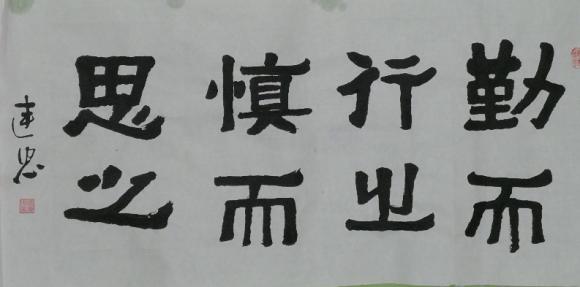 勤而
行之
慎而
思之